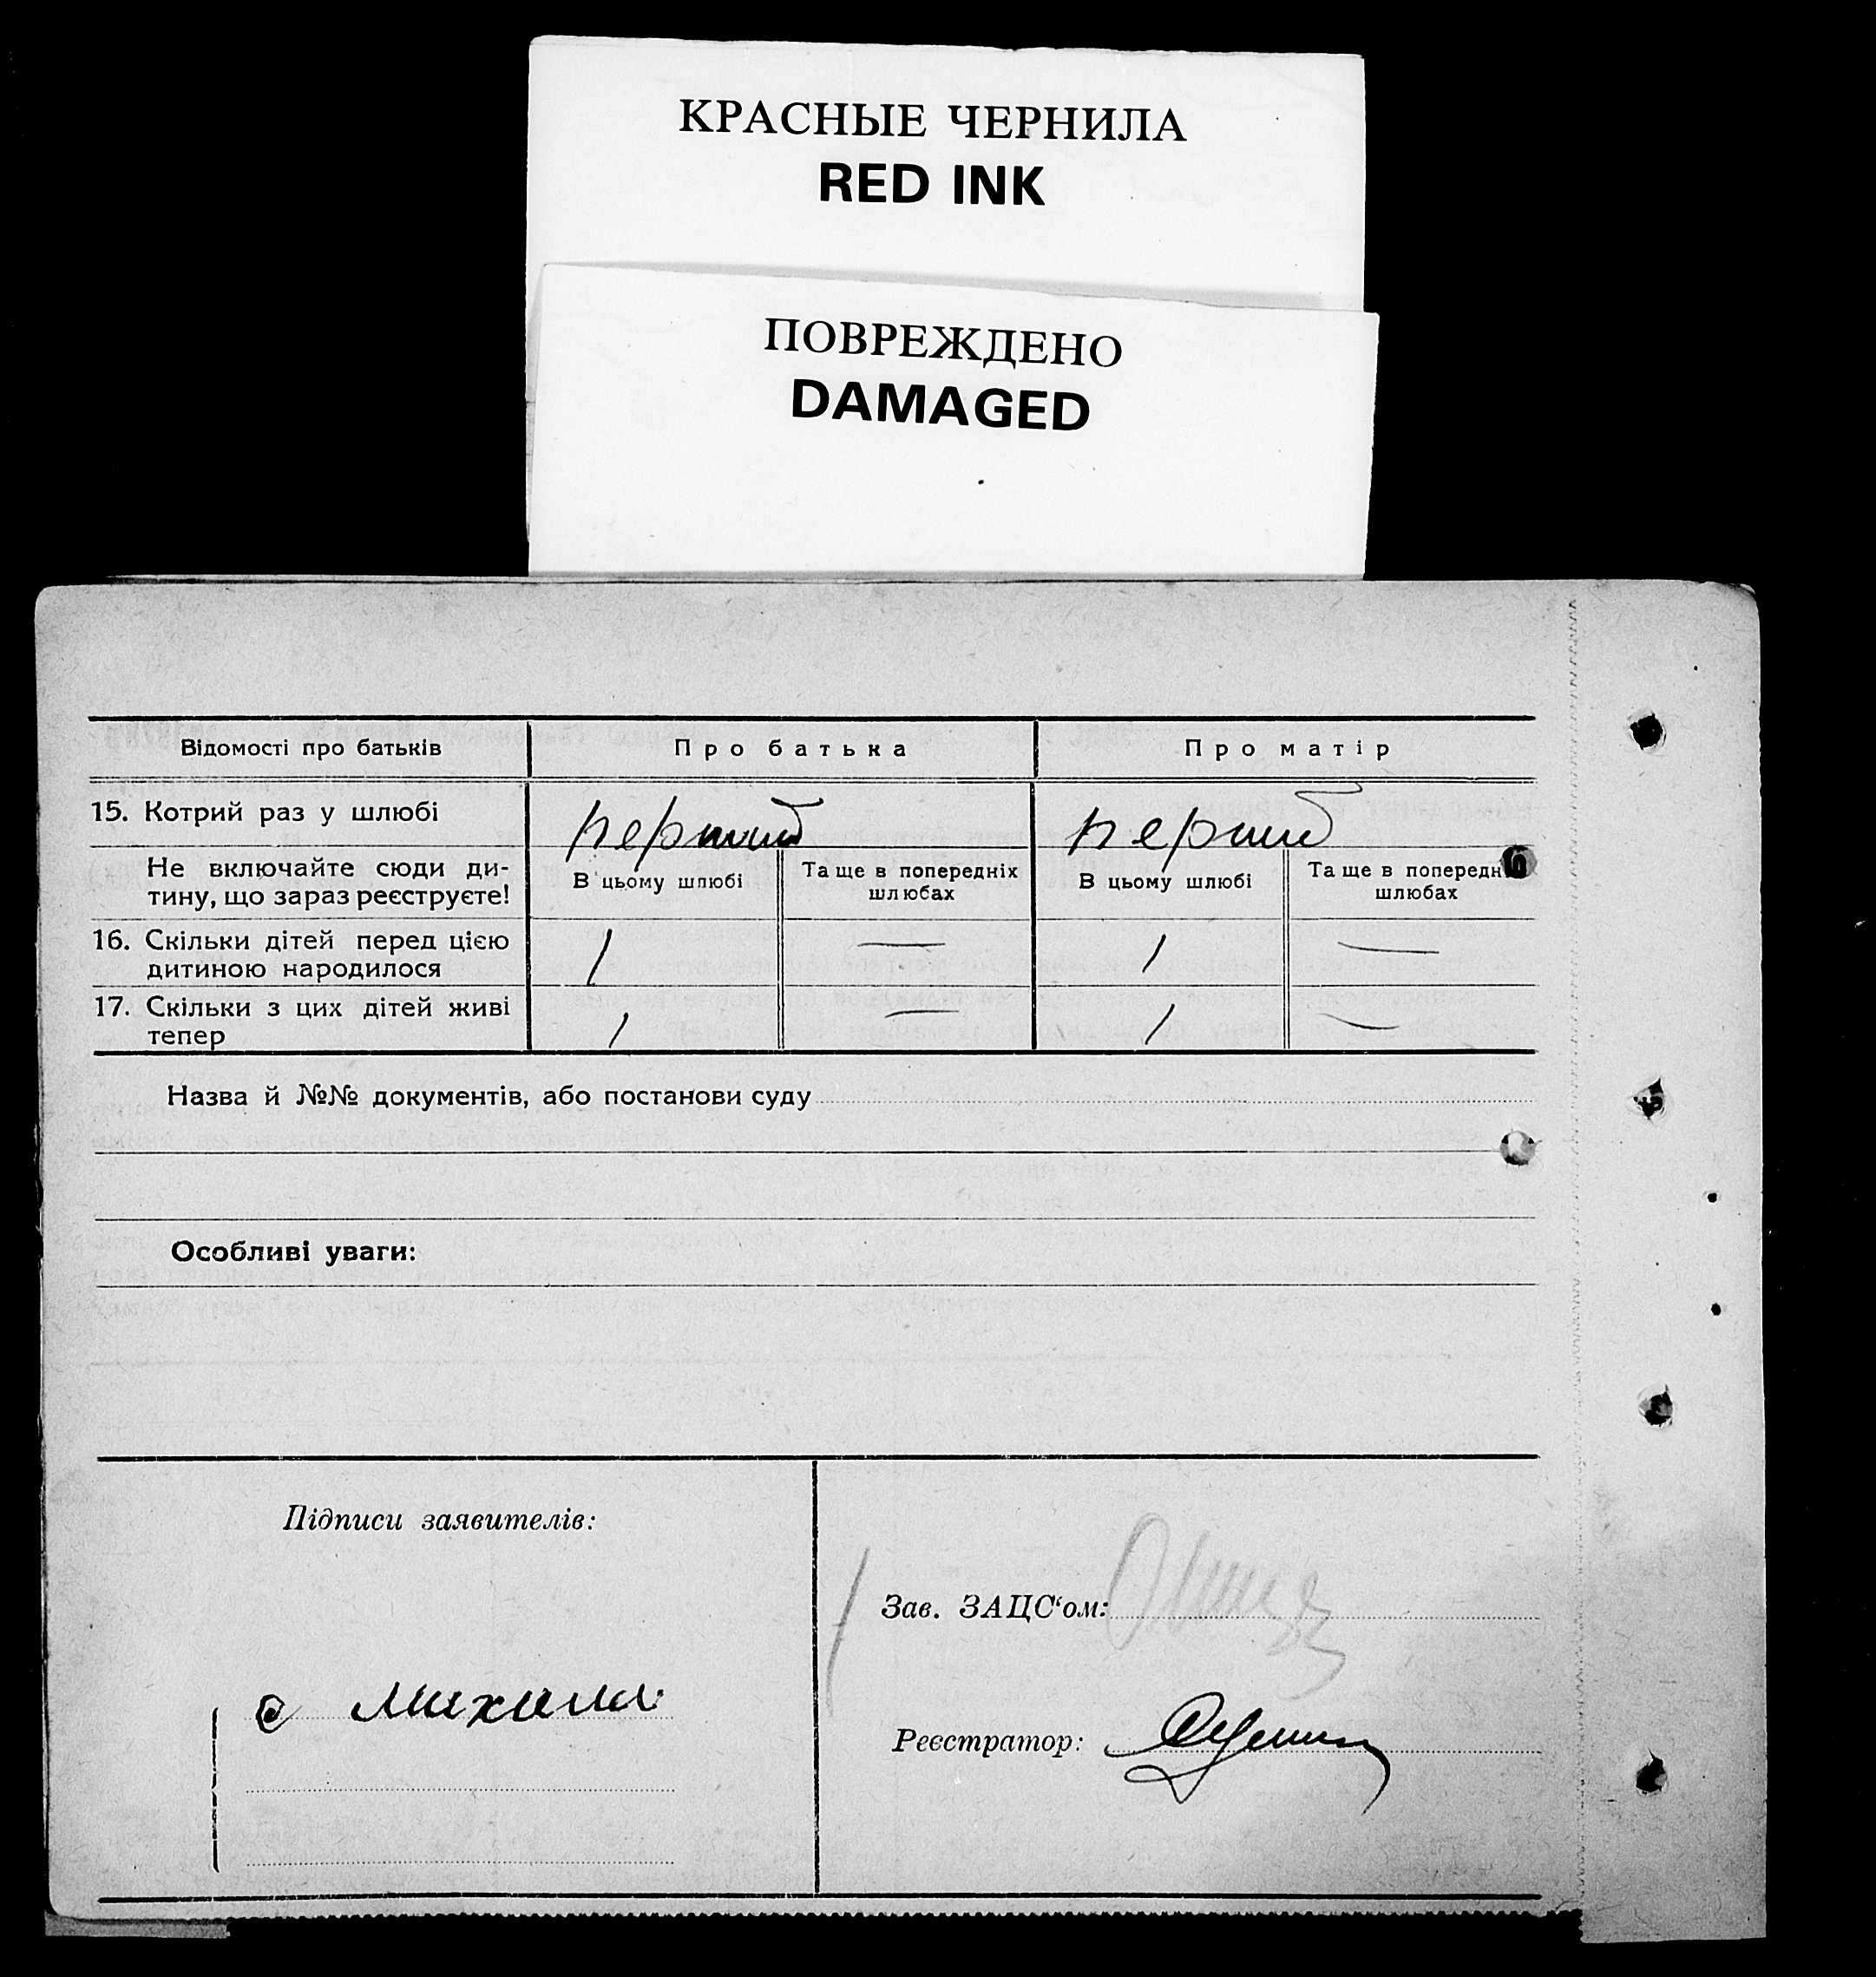 КРАСНЫЕ ЧЕРНИЛА
RED INK
ПОВРЕЖДЕНО
DAMAGED
Відомості про батьків Про батька Про матір
15. Котрий раз у шлюбі перший перший
Не включайте сюди ди-
тину, що зараз реєструєте!
В цьому шлюбі
Та ще в попередніх
шлюбах
В цьому шлюбі
Та ще в попередніх
шлюбах
16. Скільки дітей перед цією
дитиною народилося
1 — 1 —
17. Скільки з цих дітей живі
тепер
1 — 1 —
Назва й №№ документів, або постанови суду
Особливі уваги:
Підписи заявителів:
Зав. ЗАЦС‘ом:
Реєстратор: